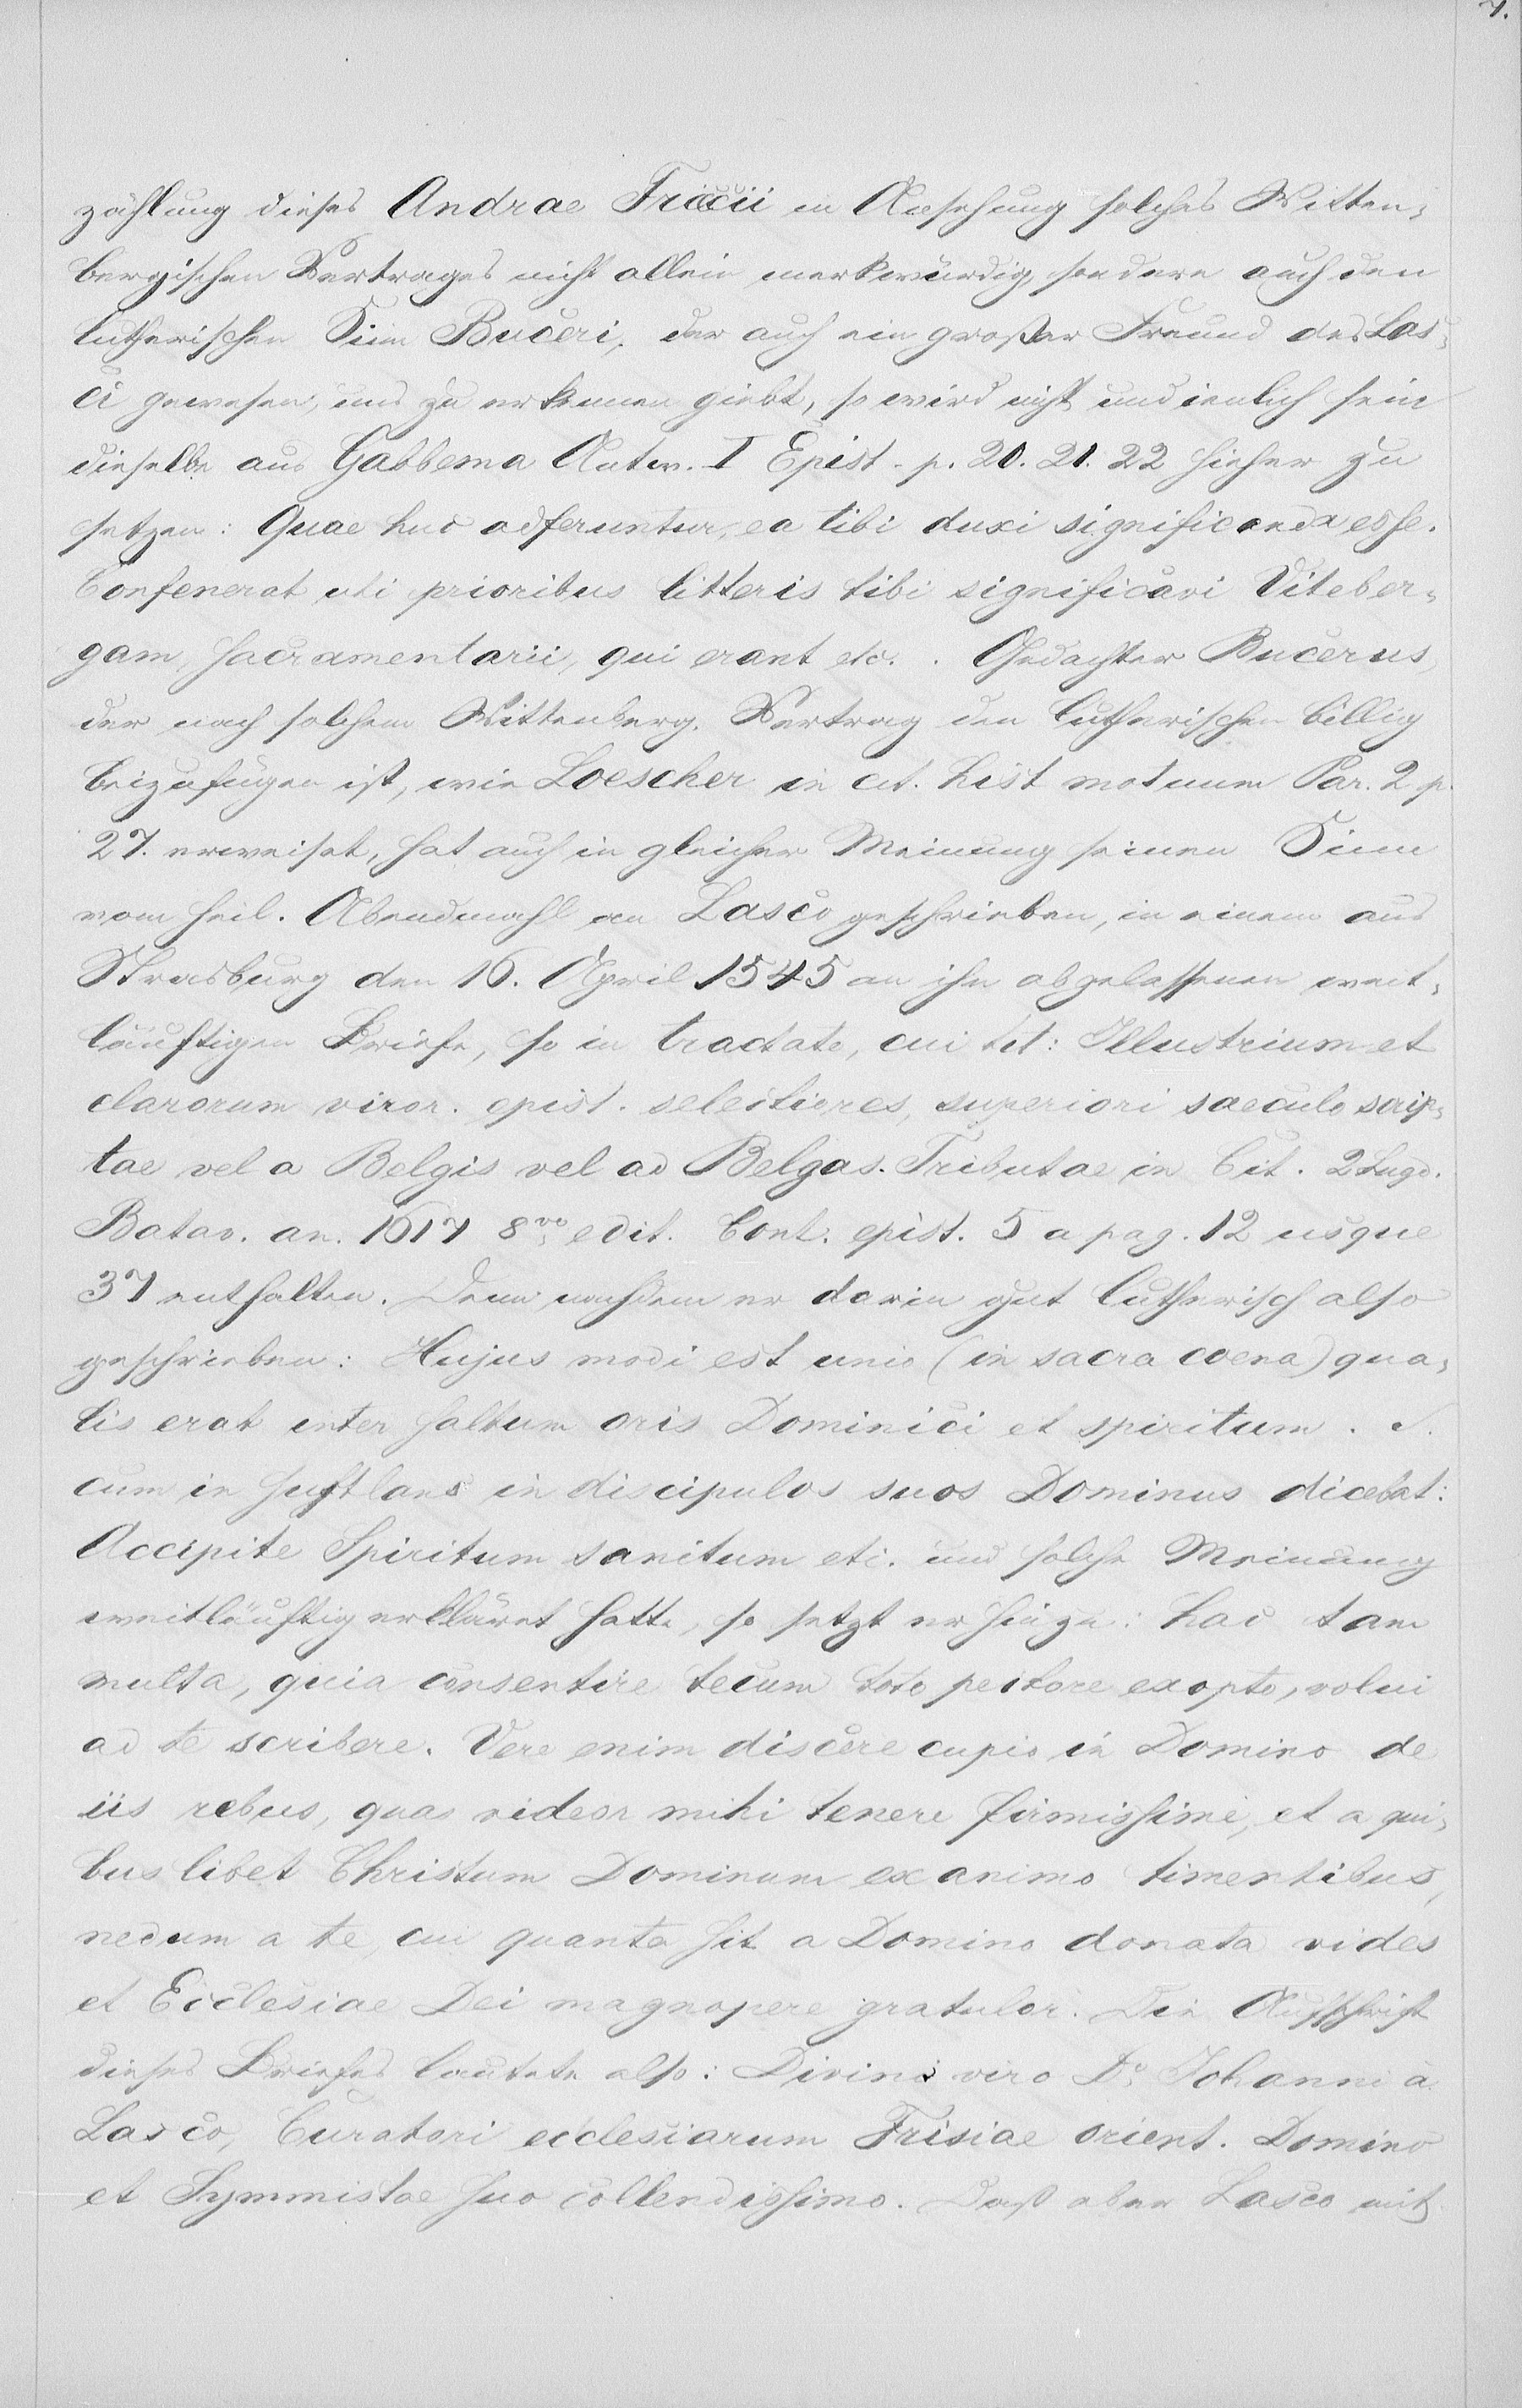 7.
zählung dieses Andrae Friccii in Ansehung solches Witten-
bergischen Vertrages nicht allein merkwürdig, sondern auch den
lutherischen Sinn Buceri, der auch ein großer Freund des Las-
ci gewesen, uns zu erkennen giebt, so wird nicht undienlich sein
dieselbe aus Gabbema Antw. I Epist. p. 20. 21. 22 hieher zu
setzen: Quae huc adferuntur, ea tibi duxi significanda esse.
Confenerat uti prioribus litteris tibi significavi Viteber-
gam, sacramentarii, qui erant etc. . Gedachter Bucerus,
der nach solchem Wittenberg. Vertrag den lutherischen billig
beizufügen ist, wie Loescher in cit. hist motuum Par. 2 p.
27. erweiset, hat auch in gleicher Meinung seinen Sinn
vom heil. Abendmahl an Lasco geschrieben, in einem aus
Strasburg den 16. April 1545 an ihn abgelassenen weit-
läuftigen Briefe, so in tractate, cui tit: Illustrium et
clarorum viror. epist. selectiores, superiori saeculo scrip-
tae vel a Belgis vel ad Belgas. Tributae in Cit. 2 Lugd.
Batav. an. 1617 8vo edit. Cont. epist. 5 a pag. 12 usque
37 enthalten. Denn nachdem er darin gut lutherisch also
geschrieben: Hujus modi est unio (in sacra coena) qua-
lis erat inter haltum oris Dominici et spiritum . S.
cum in huftlans in discipulos suos Dominus dicebat:
Accipite Spiritum sanctum etc. und solche Meinung
weitläuftig erkläret hatte, so setzt er hinzu: hac tam
multa, quia consentire tecum toto pectore exopto, volui
ad te scribere. Vere enim discere cupio in Domino de
iis rebus, quas videor mihi tenere firmissime, et a qui-
bus libet Christum Dominum ex animo timentibus,
nedum a te, cui quanta sit a Domino donata vides
et Ecclesiae Dei magnopere gratulor. Die Aufschrift
dieses Briefes lautete also: Divino viro Do Johanni a
Lasco, Curatori ecclesiarum Frisiae orient. Domino
et Symmistae suo collendissimo. Daß aber Lasco mit